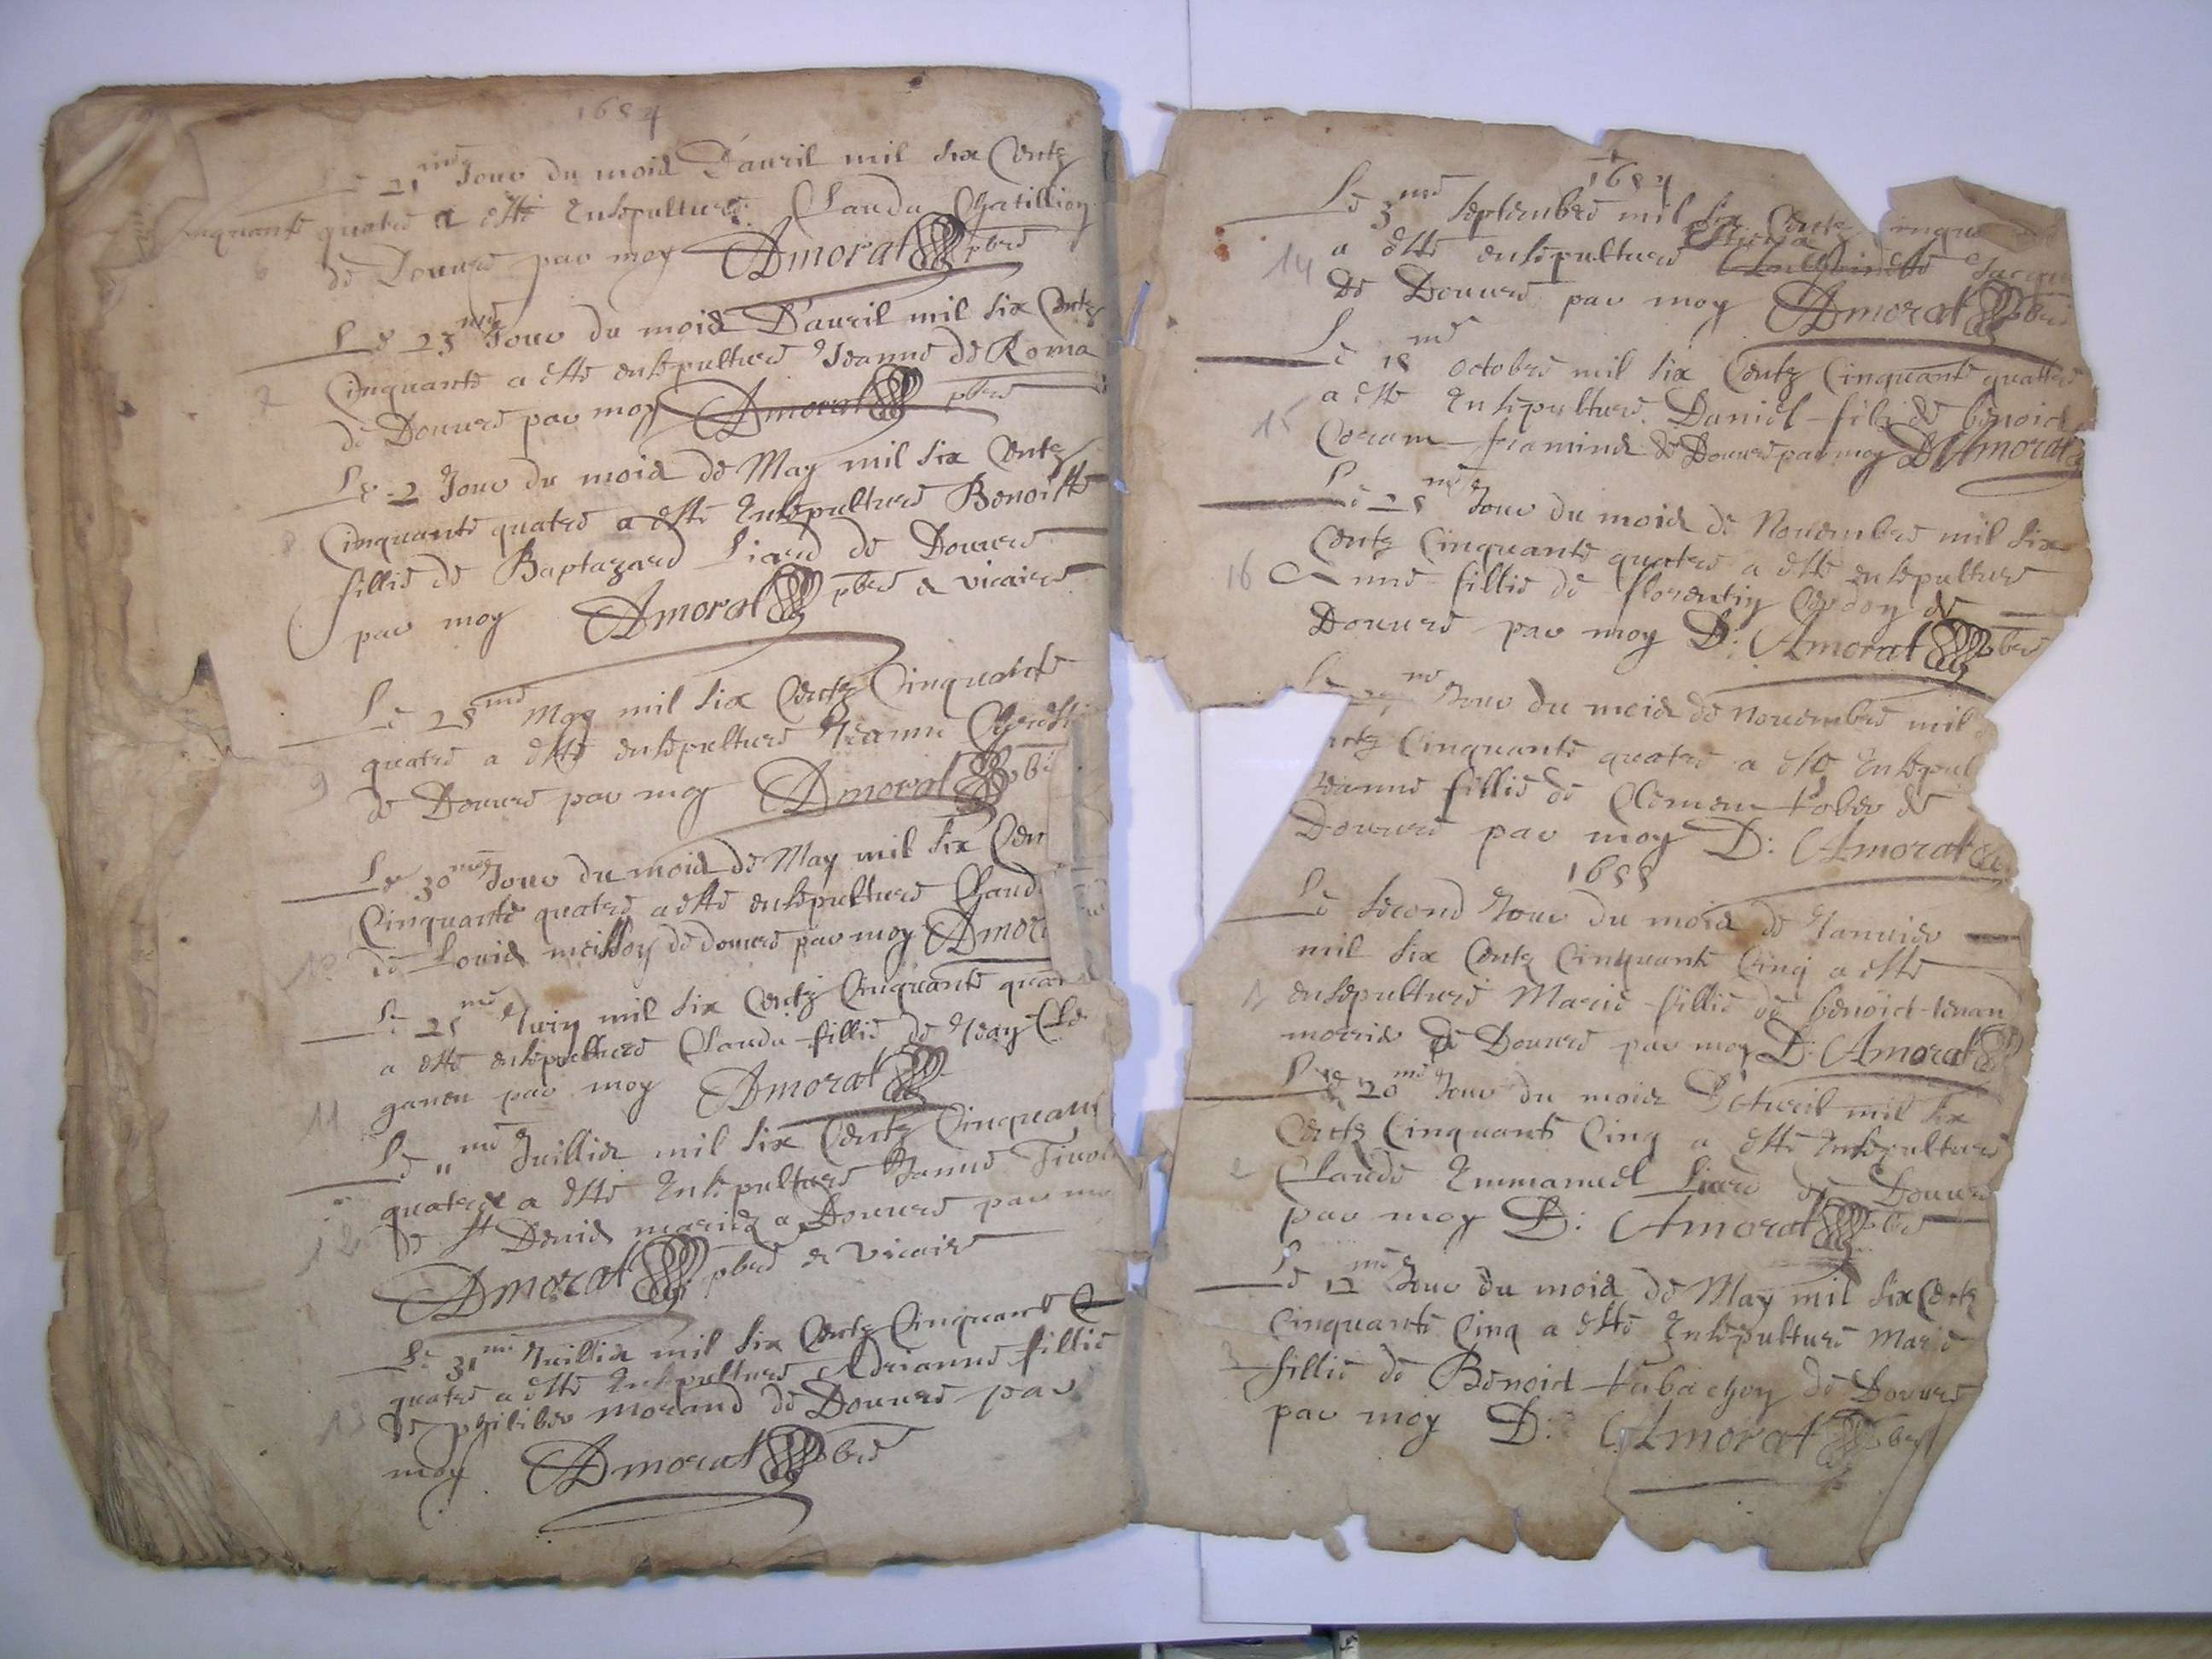 1654
Le 21me Jour du moid Dauril mil six Centz
inquante quatre a esté Ensepulturé Clauda Chatillion
6
de Douure par moy Amorat pbre
Le 23me Jour du moid Dauril mil six Centz
7
Cinquante a esté ensepulture Jeanne de Roma
de Douure par moy Amorat pbre
Le 2 Jour du moid de May mil six Centz
8
Cinquante quatre a esté Ensepulture Benoiste
fillie de Baptazard Liard de Douure
par moy Amorat pbre & vicaire
Le 28me May mil six Centz Cinquante
quatre a esté ensepulture Jeanne
9
de Douure par moy Amorat pb
Le 30me Jour du moid de May mil six Cen
Cinquante quatre a esté ensepulture Claud
10
de Louid de douure par moy Amora
Le 25me Juin mil six Centz Cinquante quat
a esté ensepulture Clauda fillie de Jean
11
par moy Amorat
Le 11me Juillid mil six Centz Cinquant
quatre a esté Ensepulture Janne
12
de st Denid a Douure par mo
Amorat pbre & vicaire
Le 31me Juillid mil six Centz Cinquante
quatre a esté Ensepulture Adrianne fillie
13
de philiber morand de Douure par
moy Amorat pbre
1654
Le 3me septembre mil six Centz inqua
14
a esté ensepulture Jacqu
De Douure par moy Amorat pbre
Le 18me octobre mil six Centz Cinquante quattre
a esté Ensepulture Daniel filz de benoid
15
de Douure par moy D Amorat
Le 28me Jour du moid de Nouembre mil six
Centz Cinquante quatre a esté ensepulture
16
Anne fillie de florentin de
Douure par moy D: Amorat pbre
Le me Jour du moid de nouembre mil
ntz Cinquante quatre a esté Ensepul
Jeanne fillie de Clemen tober de
Douure par moy D: Amorat
1655
Le second Jour du moid de Januier
mil six Centz Cinquante Cinq a esté
1
ensepulture Marie fillie de benoid tenan
de Douure par moy D: Amorat
Le 20me Jour du moid D'Auril mil six
Centz Cinquante Cinq a esté Ensepulture
2
Claude Emmanuel Liard de Douure
par moy D: Amorat pbre
Le 12me Jour du moid de May mil six Centz
Cinquante Cinq a esté Ensepulture Marie
3
fillie de Benoid tabachon de Douure
par moy D: Amorat pbre